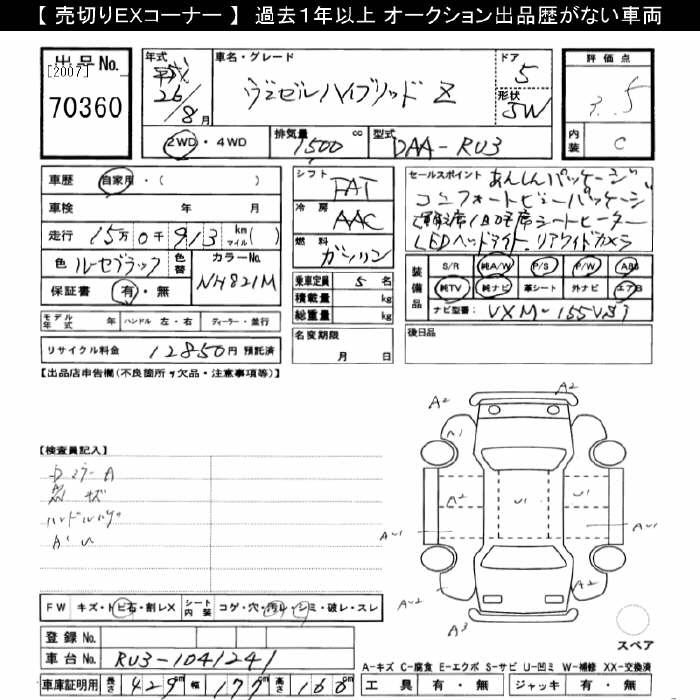 【 売切りEXコーナー 】 過去1年以上 オークション出品歴がない車両
出品No.
[2007]
70360
年式
26/8月
車名・グレード
ヴェゼルハイブリッド Z
ドア
5
形状
5W
評価点
3.5
内装
C
2WD・4WD
排気量
1500 cc
型式
DAA-RU3
車歴 自家用・( )
車検 年 月
走行 15万0千913 km マイル( )
色 ルーセブラック
色替
カラーNo.
NH821M
保証書 有・無
シフト
FAT
冷房
AAC
燃料
ガソリン
乗車定員 5 名
積載量 kg
総重量 kg
セールスポイント あんしんパッケージ
コンフォートビューパッケージ
運転席/助手席シートヒーター
LEDヘッドライト、リアワイドカメラ
装備品
S/R 純A/W P/S P/W ABS
純TV 純ナビ 革シート 外ナビ エアB
ナビ型番: VXM-155VSi
モデル年式 年 ハンドル 左・右 ディーラー・並行
リサイクル料金 12850円 預託済
名変期限
月 日
後日品
【出品店申告欄(不良箇所・欠品・注意事項等)】
【検査員記入】
A2
A2
A1
A2
U1
A-U1
A-U1
A-2
A2
A3
スペア
FW キズ・トビ石・割レX
シート内装 コゲ・穴・汚レ・シミ・破レ・スレ
登録No.
車台No. RU3-1041241
車庫証明用 長さ 429cm 幅 177cm 高さ 160cm
A-キズ C-腐食 E-エクボ S-サビ U-凹ミ W-補修 XX-交換済
工具 有・無 ジャッキ 有・無